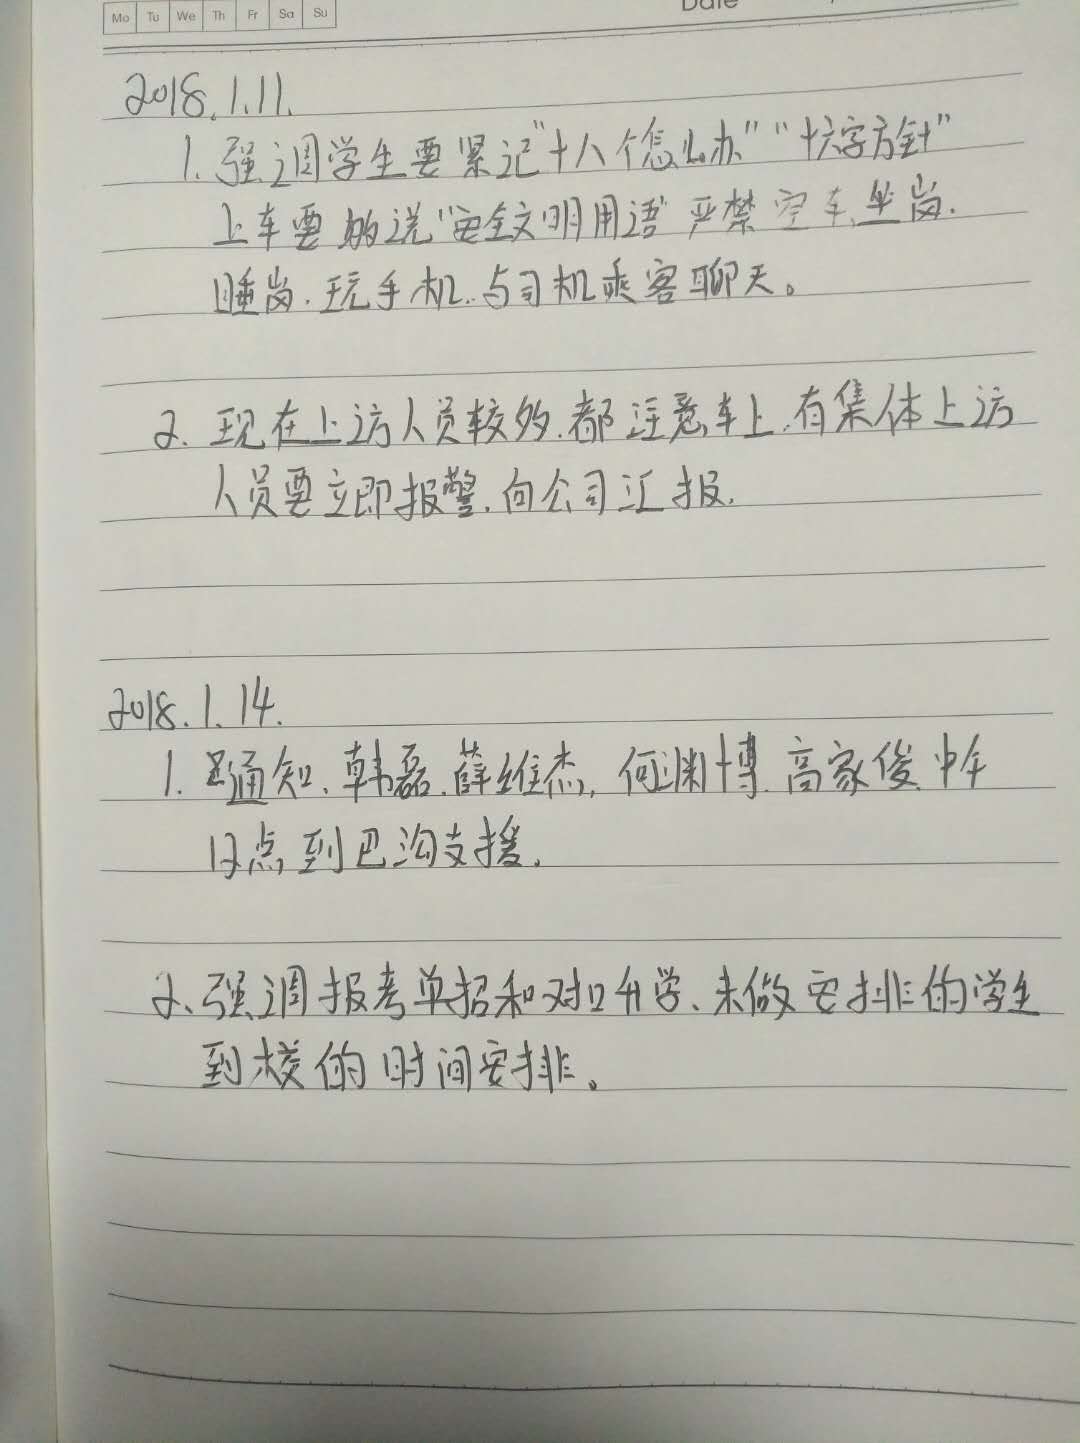 Mo Tu We Th Fr Sa Su
Date
2018.1.11.
1. 强调学生要紧记"十八个怎么办""十六字方针"
上车要 说"安全文明用语"严禁空车坐岗.
睡岗.玩手机.与司机乘客聊天。
2. 现在上访人员较多.都注意车上.有集体上访
人员要立即报警.向公司汇报.
2018.1.14.
1. 通知.韩磊.薛维杰,何渊博.高家俊.中午
12点到巴沟支援.
2、强调报考单招和对口升学、未做安排的学生
到校的时间安排。